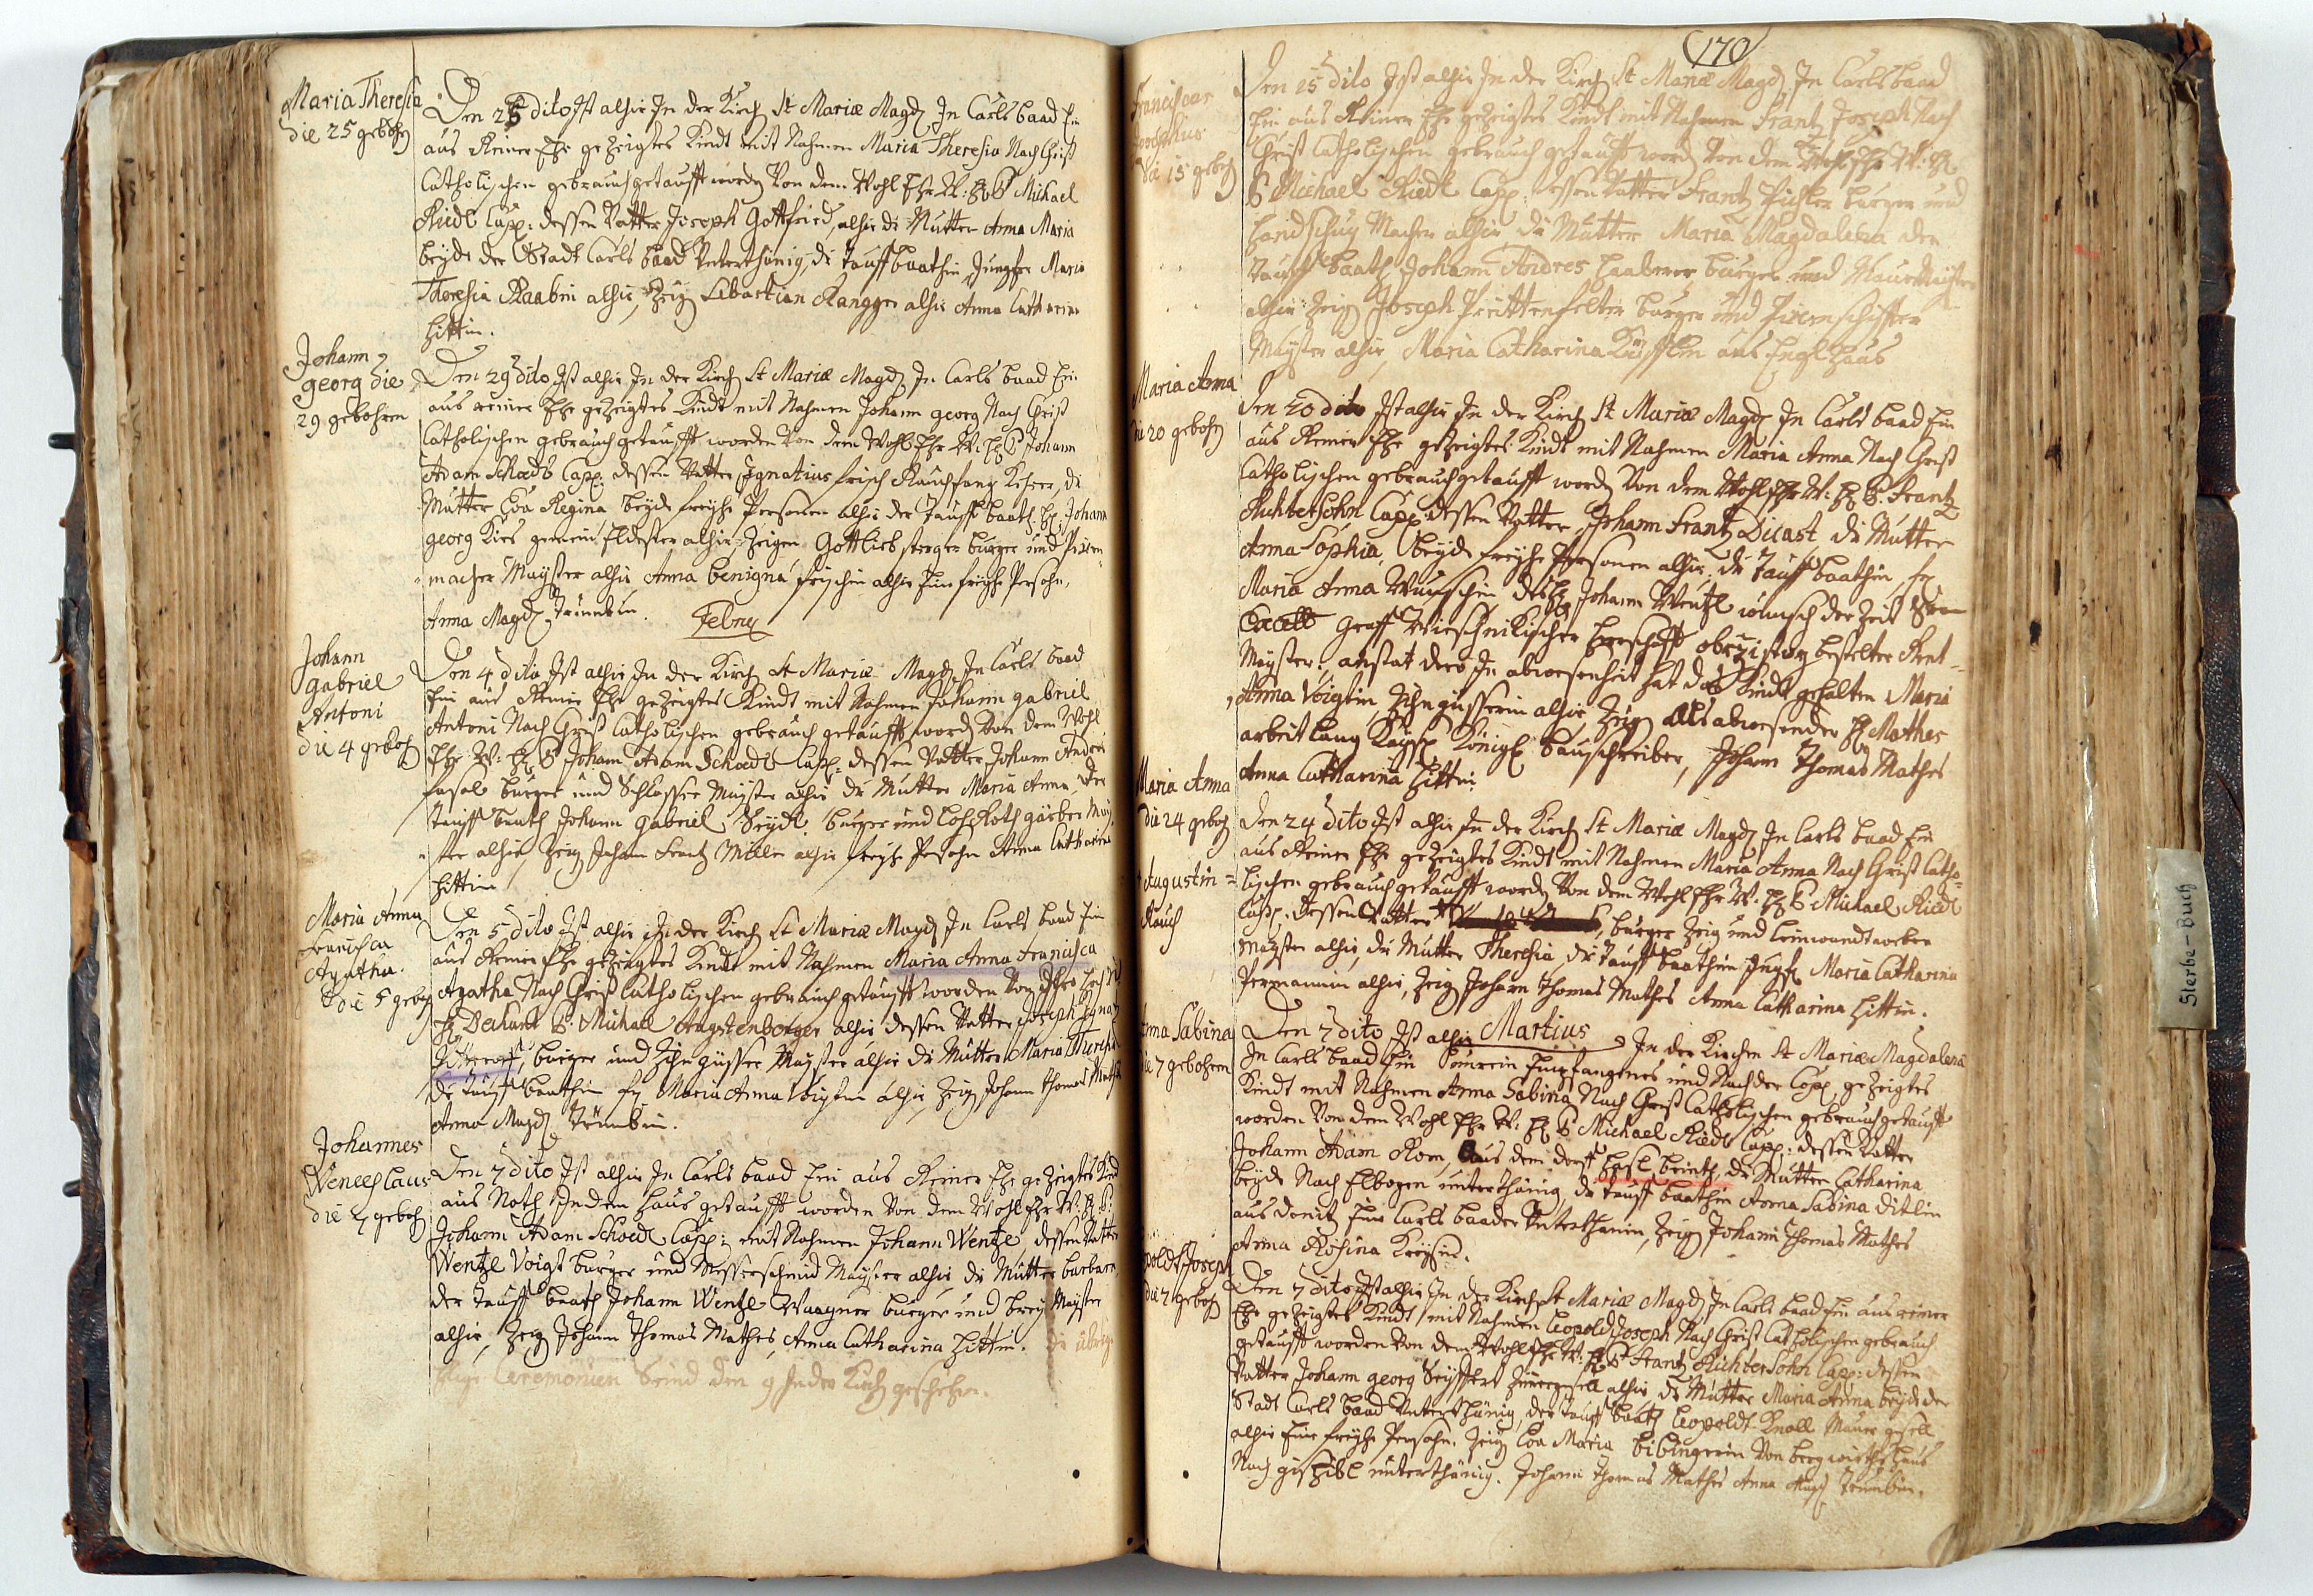 Maria Theresia
die 25 gebohrn
Den 25 dito Ist alhir In der Kirch St Mariæ Magd In Carls baad Ein
aus Reiner Ehe gezeigtes Kindt mit Nahmen Maria Theresia Nach Christ
Catholischen gebrauch getaufft worden Von dem Wohl Ehr W: H P Michael
Riedl Capp: dessen Vatter Joseph Gottfried, alhir di Mutter Anna Maria
beyde der Stadt Carls baad Unterthänig, di tauff baathin Jungfer Maria
Theresia Raabin alhir, Zeig Sebastian Rangger alhir Anna Catharina
Hittin.
Johann
georg die
29 gebohren
Den 29 dito Ist alhir In der Kirch St Mariæ Magd In Carls baad Ein
aus reiner Ehe gezeigtes Kindt mit Nahmen Johann georg Nach Christ
Catholischen gebrauch getaufft worden Von dem Wohl Ehr W: H P Johann
Adam Schoedl Capp: dessen Vatter Ignatius frisch Rauchfang Kehrer, di
Mutter Eva Regina beyde freyhe Personen alhir der Tauff baath H: Johann
georg Kirs gemein Eldester alhir Zeigen Gottlieb burger und
macher Mayster alhir Anna benigna frischin alhir Ein freyhe Persohn,
Anna Magd Trumbin.
Febru
Johann
gabriel
Antoni
die 4 geboh
Den 4 dito Ist alhir In der Kirch St Mariæ Magd In Carls baad
Ein aus Reiner Ehe gezeigtes Kindt mit Nahmen Johann gabriel
Antoni Nach Christ Catholischen gebrauch getaufft word Von dem Wohl
Ehr W: H P Johann Adam Schoedl Capp: dessen Vatter Johann Andres
fasolt burger und Schlosser Mayster alhir di Mutter Maria Anna, der
tauff baath Johann gabriel Seydl burger und Loh Roth gärber May
ster alhir, Zeig Johann Frantz Miller alhir freyhe Persohn Anna Catharina
Hittin
Maria Anna
francisca
Agatha.
die 5 geboh
Den 5 dito Ist alhir In der Kirch St Mariæ Magd In Carls baad Ein
aus Reiner Ehe gezeigtes Kindt mit Nahmen Maria Anna Francisca
Agatha Nach Christ Catholischen gebrauch getaufft worden Von
H Dechant P. Michael Angstenberger alhir dessen Vatter Joseph Ignatz
burger und Zihn güsser Mayster alhir di Mutter Maria Theresia
di tauff baathin fr Maria Anna Voigtin alhir, Zeig Johann thomas Mathes
Anna Magd Trumbin.
Johannes
Wenceslaus
die 7 geboh
Den 7 dito Ist alhir In Carls baad Ein aus Reiner Ehe gezeigtes Kind
aus Noth In dem Haus getaufft worden Von dem Wohl Ehr W: H P:
Johann Adam Schoedl Capp: mit Nahmen Johann Wentzl dessen Vatter
Wentzl Voigt burger und Messerschmid Mayster alhir di Mutter barbara,
der tauff baath Johann Wentzl Waagner burger und Mayster
alhir, Zeig Johann Thomas Mathes, Anna Catharina Hittin. di übrige
Ceremonien Seind den 9 In der Kirch geschehen.
170
Franciscus
Josephus
die 15 geboh
Den 15 dito Ist alhir In der Kirch St Mariæ Magd In Carls baad
Ein aus Reiner Ehe gezeigtes Kindt mit Nahmen Frantz Joseph Nach
Christ Catholischen gebrauch getaufft word Von dem Wohl Ehr W: H
P Michael Riedl Capp: dessen Vatter Frantz Pichler burger und
Handschug Macher alhir di Mutter Maria Magdalena der
tauff baath Johann Andres Haabmer burger und Maur Mayster
alhir Zeig Joseph Preittenfelter burger und
Mayster alhir, Maria Catharina aus Engl Haus
Maria Anna
die 20 geboh
Den 20 dito Ist alhir In der Kirch St Mariæ Magd In Carls baad Ein
aus Reiner Ehe gezeigtes Kindt mit Nahmen Maria Anna Nach Christ
Catholischen gebrauch getaufft word Von dem Wohl Ehr W: H P. Frantz
Richtersohn Capp dessen Vatter Johann Frantz Dicast di Mutter
Anna Sophia, beyde freyhe Personen alhir, di tauff baathin, fr
Maria Anna Wunschin des H Johann Wentzl wunsch der Zeit
Excell Graff Herschafft bestelter Rent
Mayster, anstat dero In abwesenheit hat das Kindt gehalten Maria
Anna Voigtin, Zihn güsserin alhir, Zeig Als abwesender H Mathes
arbeit lang Kaysl Königl bauschreiber, Johann Thomas Mathes
Anna Catharina Hittin.
Maria Anna
die 24 geboh
Augustin
Rauch
Den 24 dito Ist alhir In der Kirch St Mariæ Magd In Carls baad Ein
aus Reiner Ehe gezeigtes Kindt mit Nahmen Maria Anna Nach Christ Catho-
lischen gebrauch getaufft word Von dem Wohl Ehr W. H P Michael Riedl
Capp. dessen Vatter burger Zeig und leinwandt weber
Mayster alhir, di Mutter Theresia, di tauff baathin Jungf Maria Catharina
Permannin alhir, Zeig Johann Thomas Mathes Anna Catharina Hittin.
Martius
Anna Sabina
die 7 gebohren
Den 7 dito Ist alhir In der Kirchen St Mariæ Magdalena
In Carls baad Ein Unrein Empfangenes und Nach der Copp gezeigtes
Kindt mit Nahmen Anna Sabina Nach Christ Catholischen gebrauch getaufft
worden Von dem Wohl Ehr W. H P Michael Riedl Capp: dessen Vatter
Johann Adam Rom, aus dem dorff di Mutter Catharina
beyde Nach Elbogen unterthänig di tauff baathin Anna Sabina Ditlin
aus donitz Eine Carls baader Unterthanin, Zeig Johann Thomas Mathes
Anna Rosina Kreysin.
Leopoldt Joseph
die 7 geboh
Den 7 dito Ist alhir In der Kirch St Mariæ Magd In Carls baad Ein aus reiner
Ehe gezeigtes Kindt mit Nahmen Leopold Joseph Nach Christ Catholischen gebrauch
getaufft worden Von dem Wohl Ehr W: H P Frantz Richtersohn Capp: dessen
Vatter Johann georg Seyffert Zimergesell alhir di Mutter Maria Anna beyde der
Stadt Carls baad Unterthänig, der tauff baath Leopoldt Knoll Maurer gesell
alhir Eine freyhe Persohn. Zeig Eva Maria bibingerin Von berg wirths haus
Nach gishibl unterthänig. Johann Thomas Mathes Anna Magd Trumbin.
Sterbe-Buch